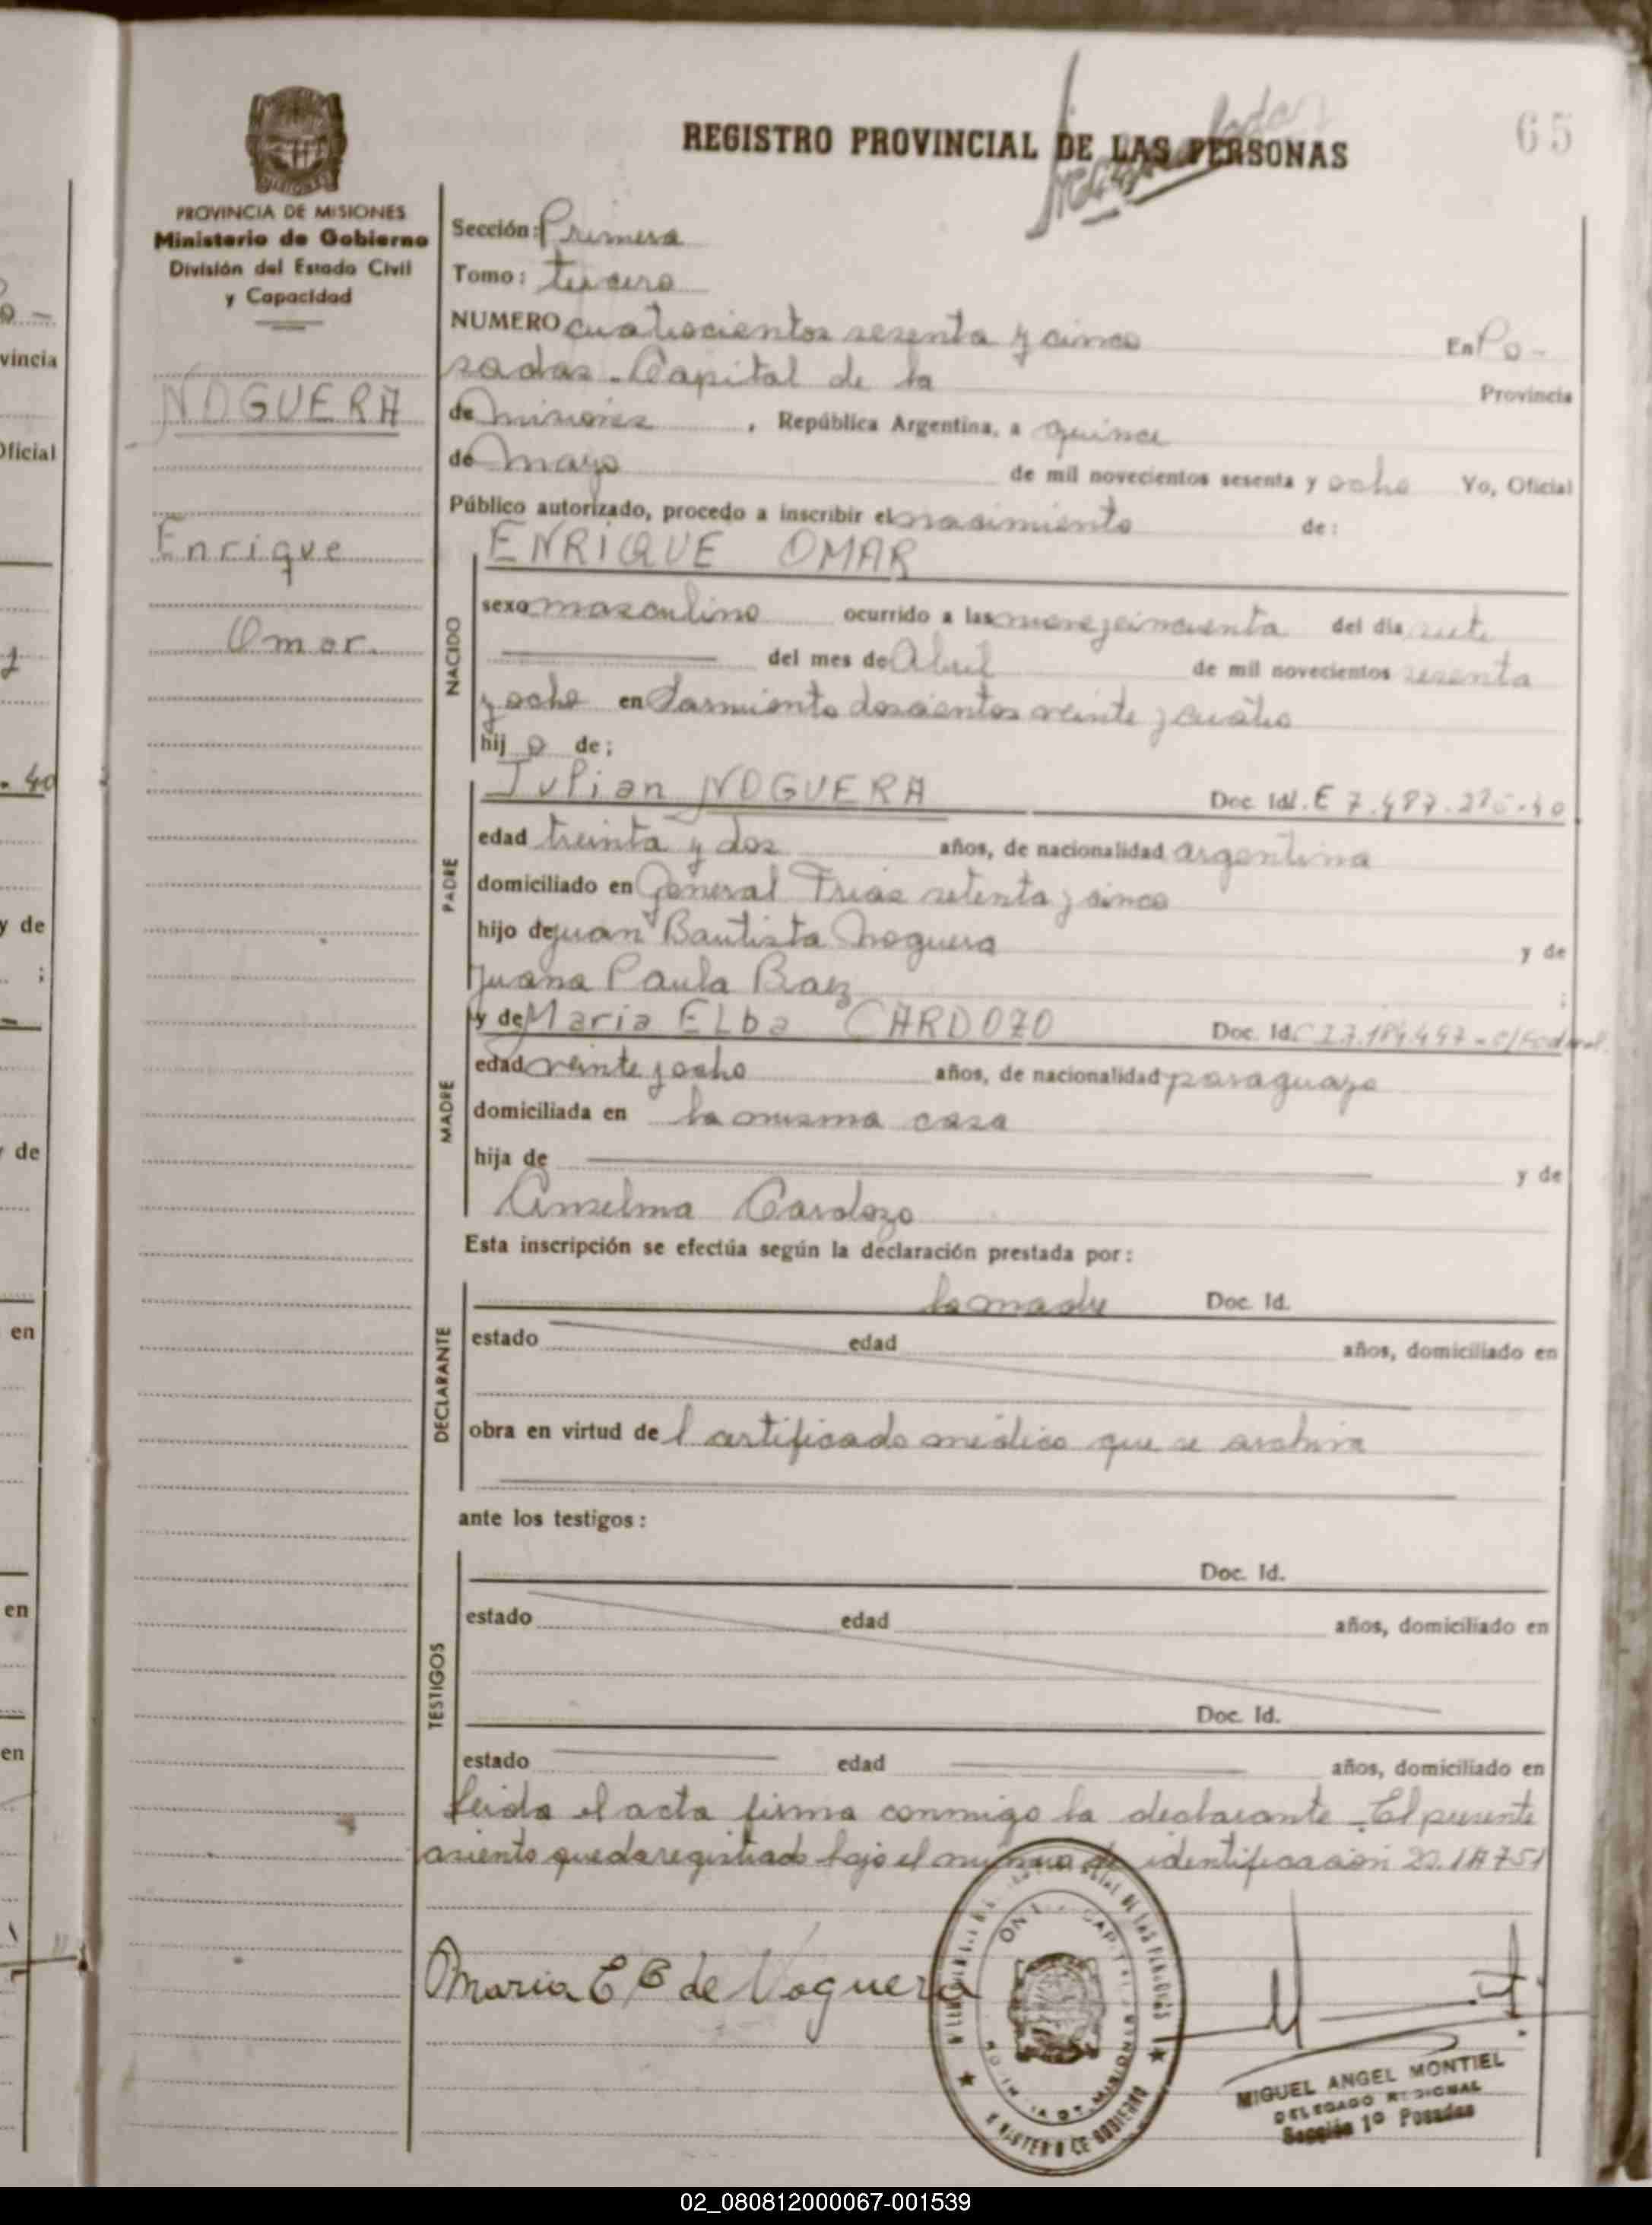 65
REGISTRO PROVINCIAL DE LAS PERSONAS
PROVINCIA DE MISIONES
Ministerio de Gobierno
División del Estado Civil
y Capacidad
NOGUERA
Enrique
Omar.
Sección: Primera
Tomo: tercero
NUMERO cuatrocientos sesenta y cinco En Po-
sadas - Capital de la Provincia
de Misiones , República Argentina, a quince
de mayo de mil novecientos sesenta y ocho Yo, Oficial
Público autorizado, procedo a inscribir el nacimiento de:
ENRIQUE OMAR
NACIDO
sexo masculino ocurrido a las nueve y cincuenta del día siete
del mes de Abril de mil novecientos sesenta
y ocho en Sarmiento doscientos veinte y cuatro
hij o de;
PADRE
Julian NOGUERA Doc. Id.
edad treinta y dos años, de nacionalidad argentina
domiciliado en General Frias setenta y cinco
hijo de Juan Bautista Noguera y de
Juana Paula Baez ;
MADRE
y de Maria ELba CARDOZO Doc. Id.
edad veinte y ocho años, de nacionalidad paraguaya
domiciliada en la misma casa
hija de y de
Anselma Cardozo
Esta inscripción se efectúa según la declaración prestada por:
DECLARANTE
la madre Doc. Id.
estado edad años, domiciliado en
obra en virtud de l certificado médico que se archiva
ante los testigos:
TESTIGOS
Doc. Id.
estado edad años, domiciliado en
Doc. Id.
estado edad años, domiciliado en
leida el acta firma conmigo la declarante - El presente
asiento queda registrado bajo el numero de identificación
Maria E C de Noguera
MINISTERIO DE GOBIERNO
MIGUEL ANGEL MONTIEL
DELEGADO REGIONAL
Sección 1º Posadas
vincia
Oficial
y de
;
de
en
en
en
02_080812000067-001539